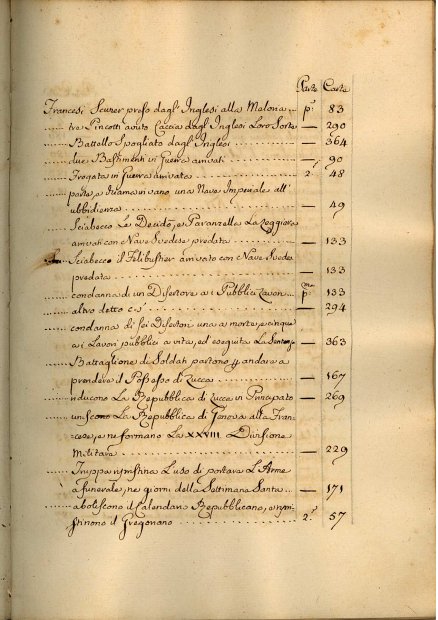 Parte Carta
Francesi Scurer preso dagl' Inglesi alla Melona ... p.ª 83
...... tre Pincotti avuto Caccia dagl' Inglesi Loro Sorte — 290
...... Battello Spogliato dagl' Inglesi ........ — 364
...... due Bastimenti di Guerra arrivati ....... — 90
...... Fregata in Guerra arrivata ........ 2.ª 48
...... porta, a una Nave Imperiale all'
ubbidienza ........ — 49
...... Sciabecco Le Decidé, e Paranzella La Leggiera
arrivati con Nave Svedese predata ........ — 133
...... Sciabecco il Felibuster arrivato con Nave Svedese
predata ........ — 133
...... condanna di un Disertore a i Pubblici Lavori ... p.ª 133
...... altro detto c.s. ........ — 294
...... condanna di sei Disertori uno a morte, e cinque
a i Lavori pubblici a vita, ed eseguita La Sentenza — 363
...... Battaglione di Soldati partono p. andare a
prendere il Possesso di Lucca ........ — 167
...... riducono La Repubblica di Lucca in Principato — 269
...... uniscono La Repubblica di Genova alla Fran-
cese, e ne formano La XXVIII Divisione
Militare ........ — 229
...... Truppa ripristina L'uso di portare L'Arme
a funerale, ne giorni della Settimana Santa ... — 171
...... aboliscono il Calendario Repubblicano, e ripri-
stinono il Gregoriano ........ 2.ª 57